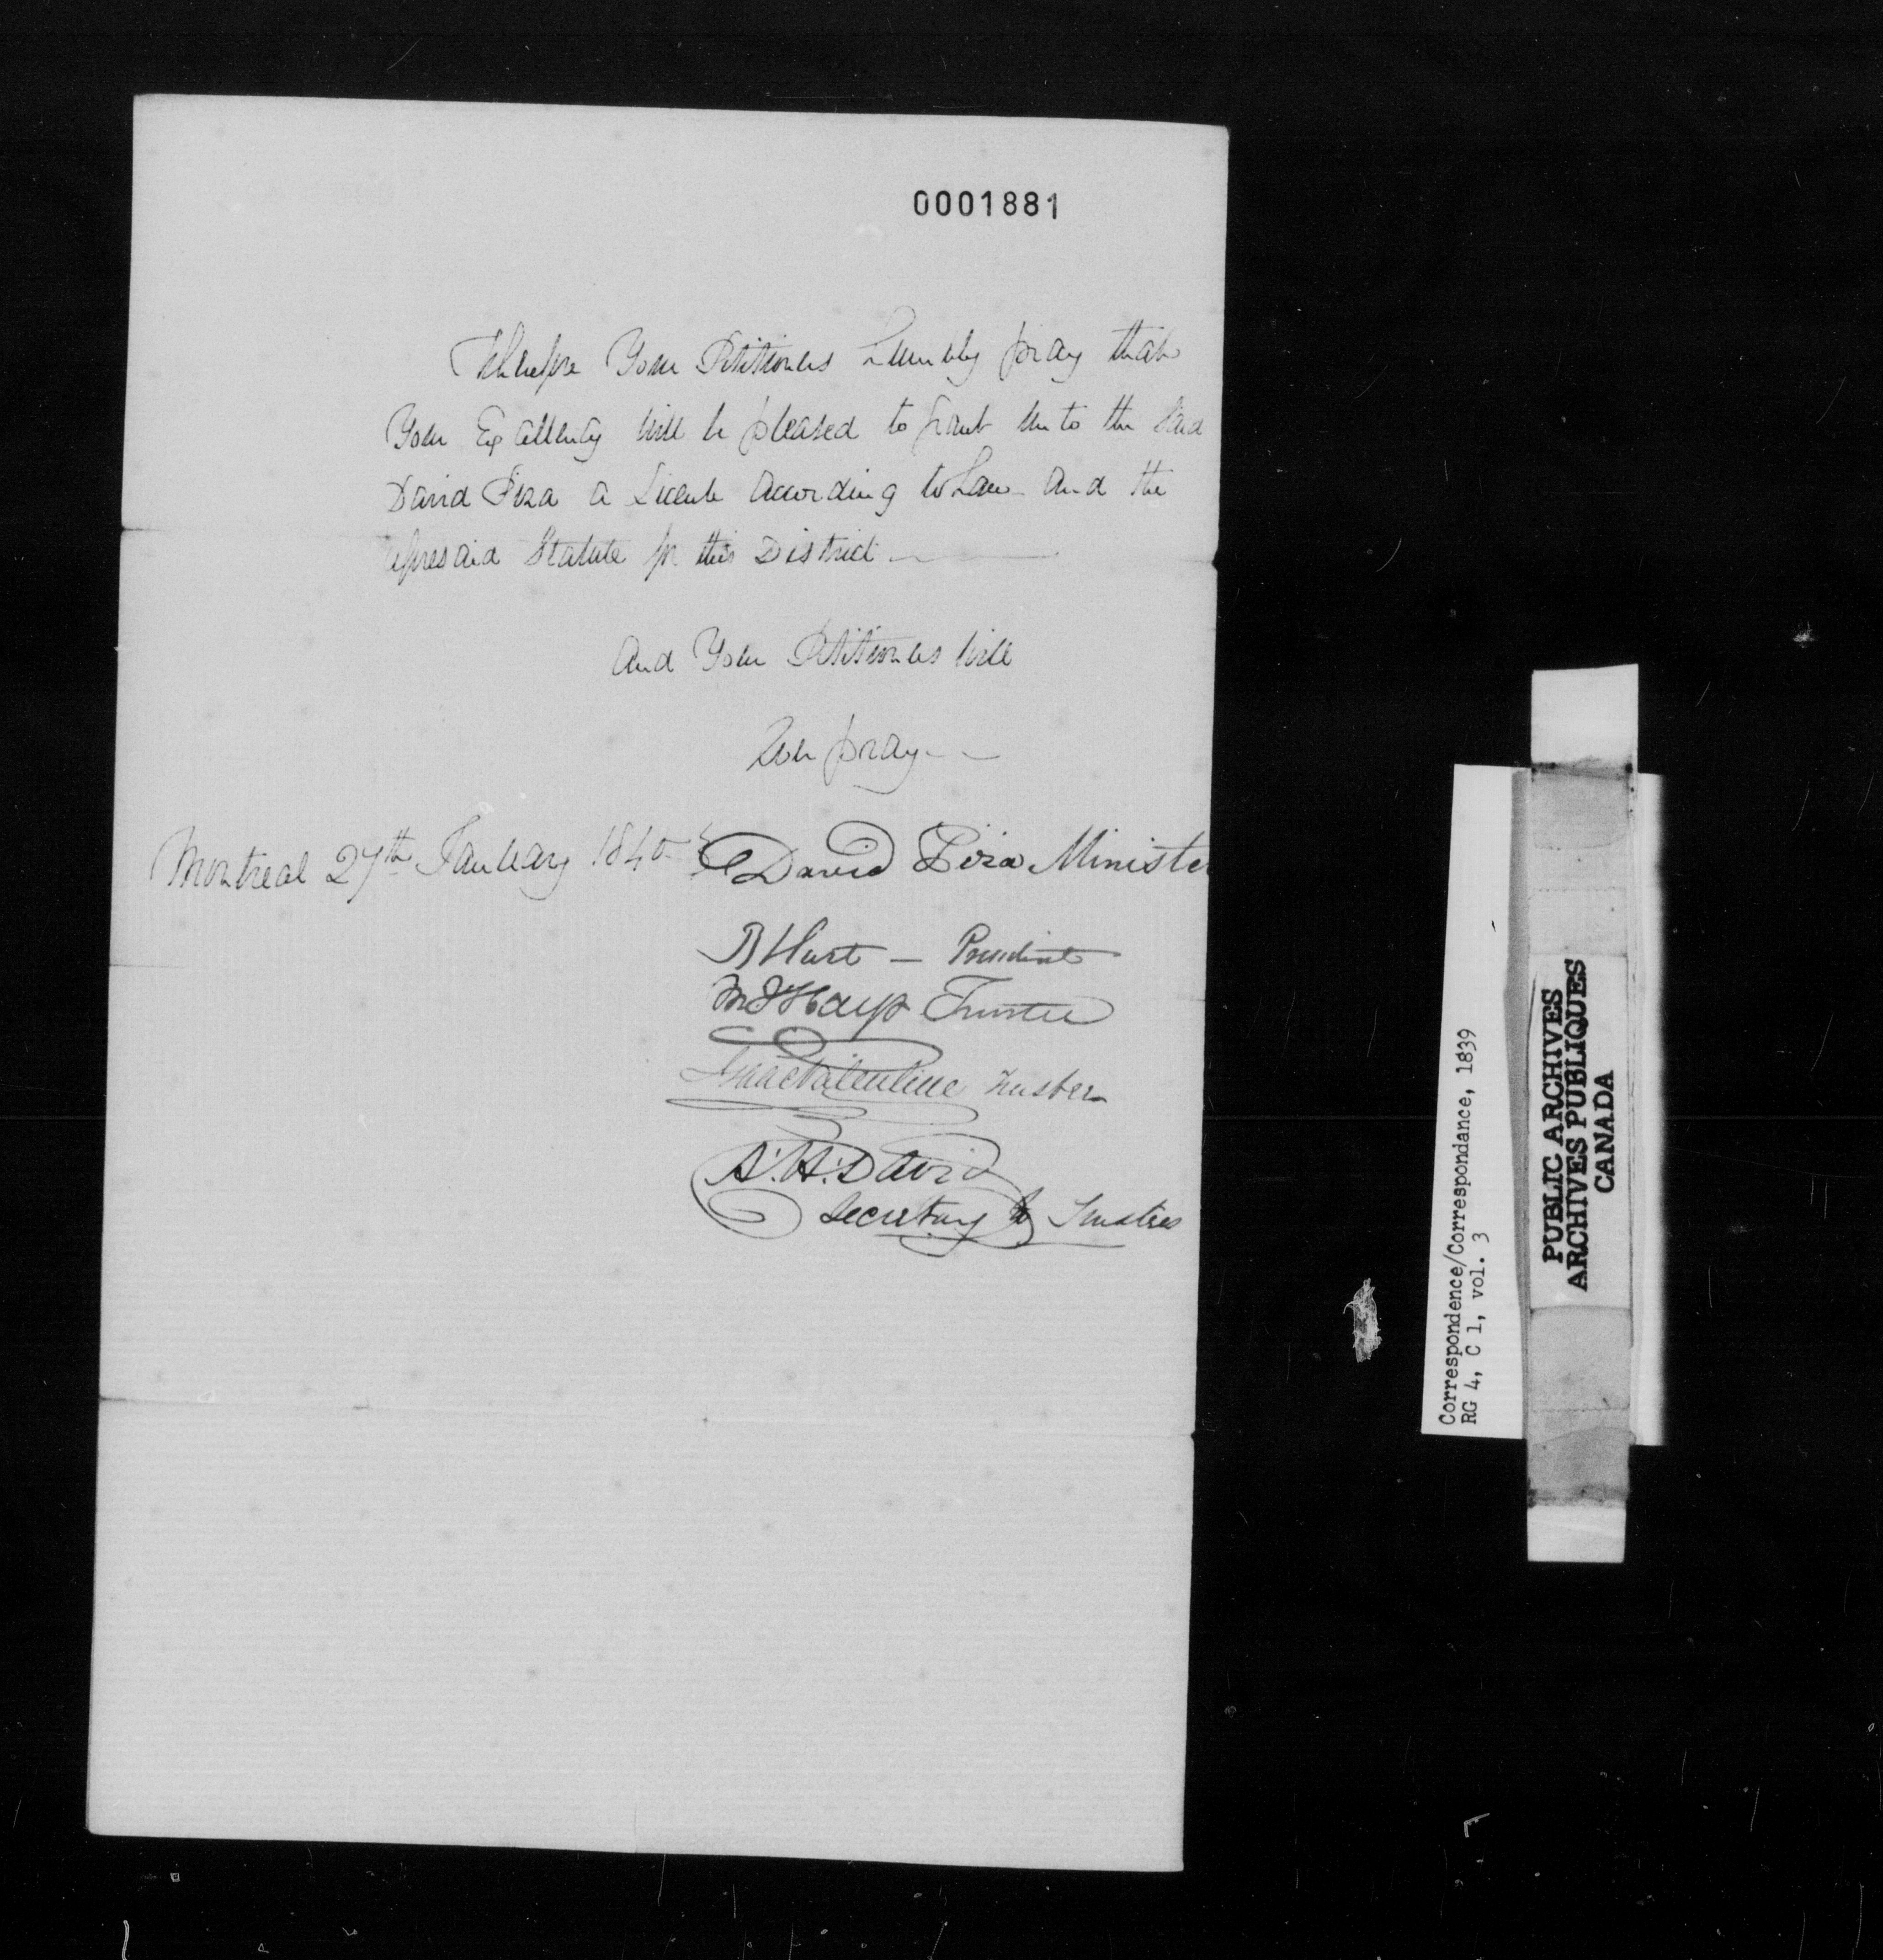 0001881
Therefore Your Petitioners humbly pray that
Your Excellency will be pleased to grant unto the said
David Piza a Licence according to Law and the
aforesaid Statute for this District
And Your Petitioners will
Ever pray
Montreal 27th January 1840
David Piza Minister
B Hart — President
M J Hays Trustee
Isaac Valentine Trustee
A. H. David
Secretary to Trustees
Correspondence/Correspondance, 1839
RG 4, C 1, vol. 3
PUBLIC ARCHIVES
ARCHIVES PUBLIQUES
CANADA